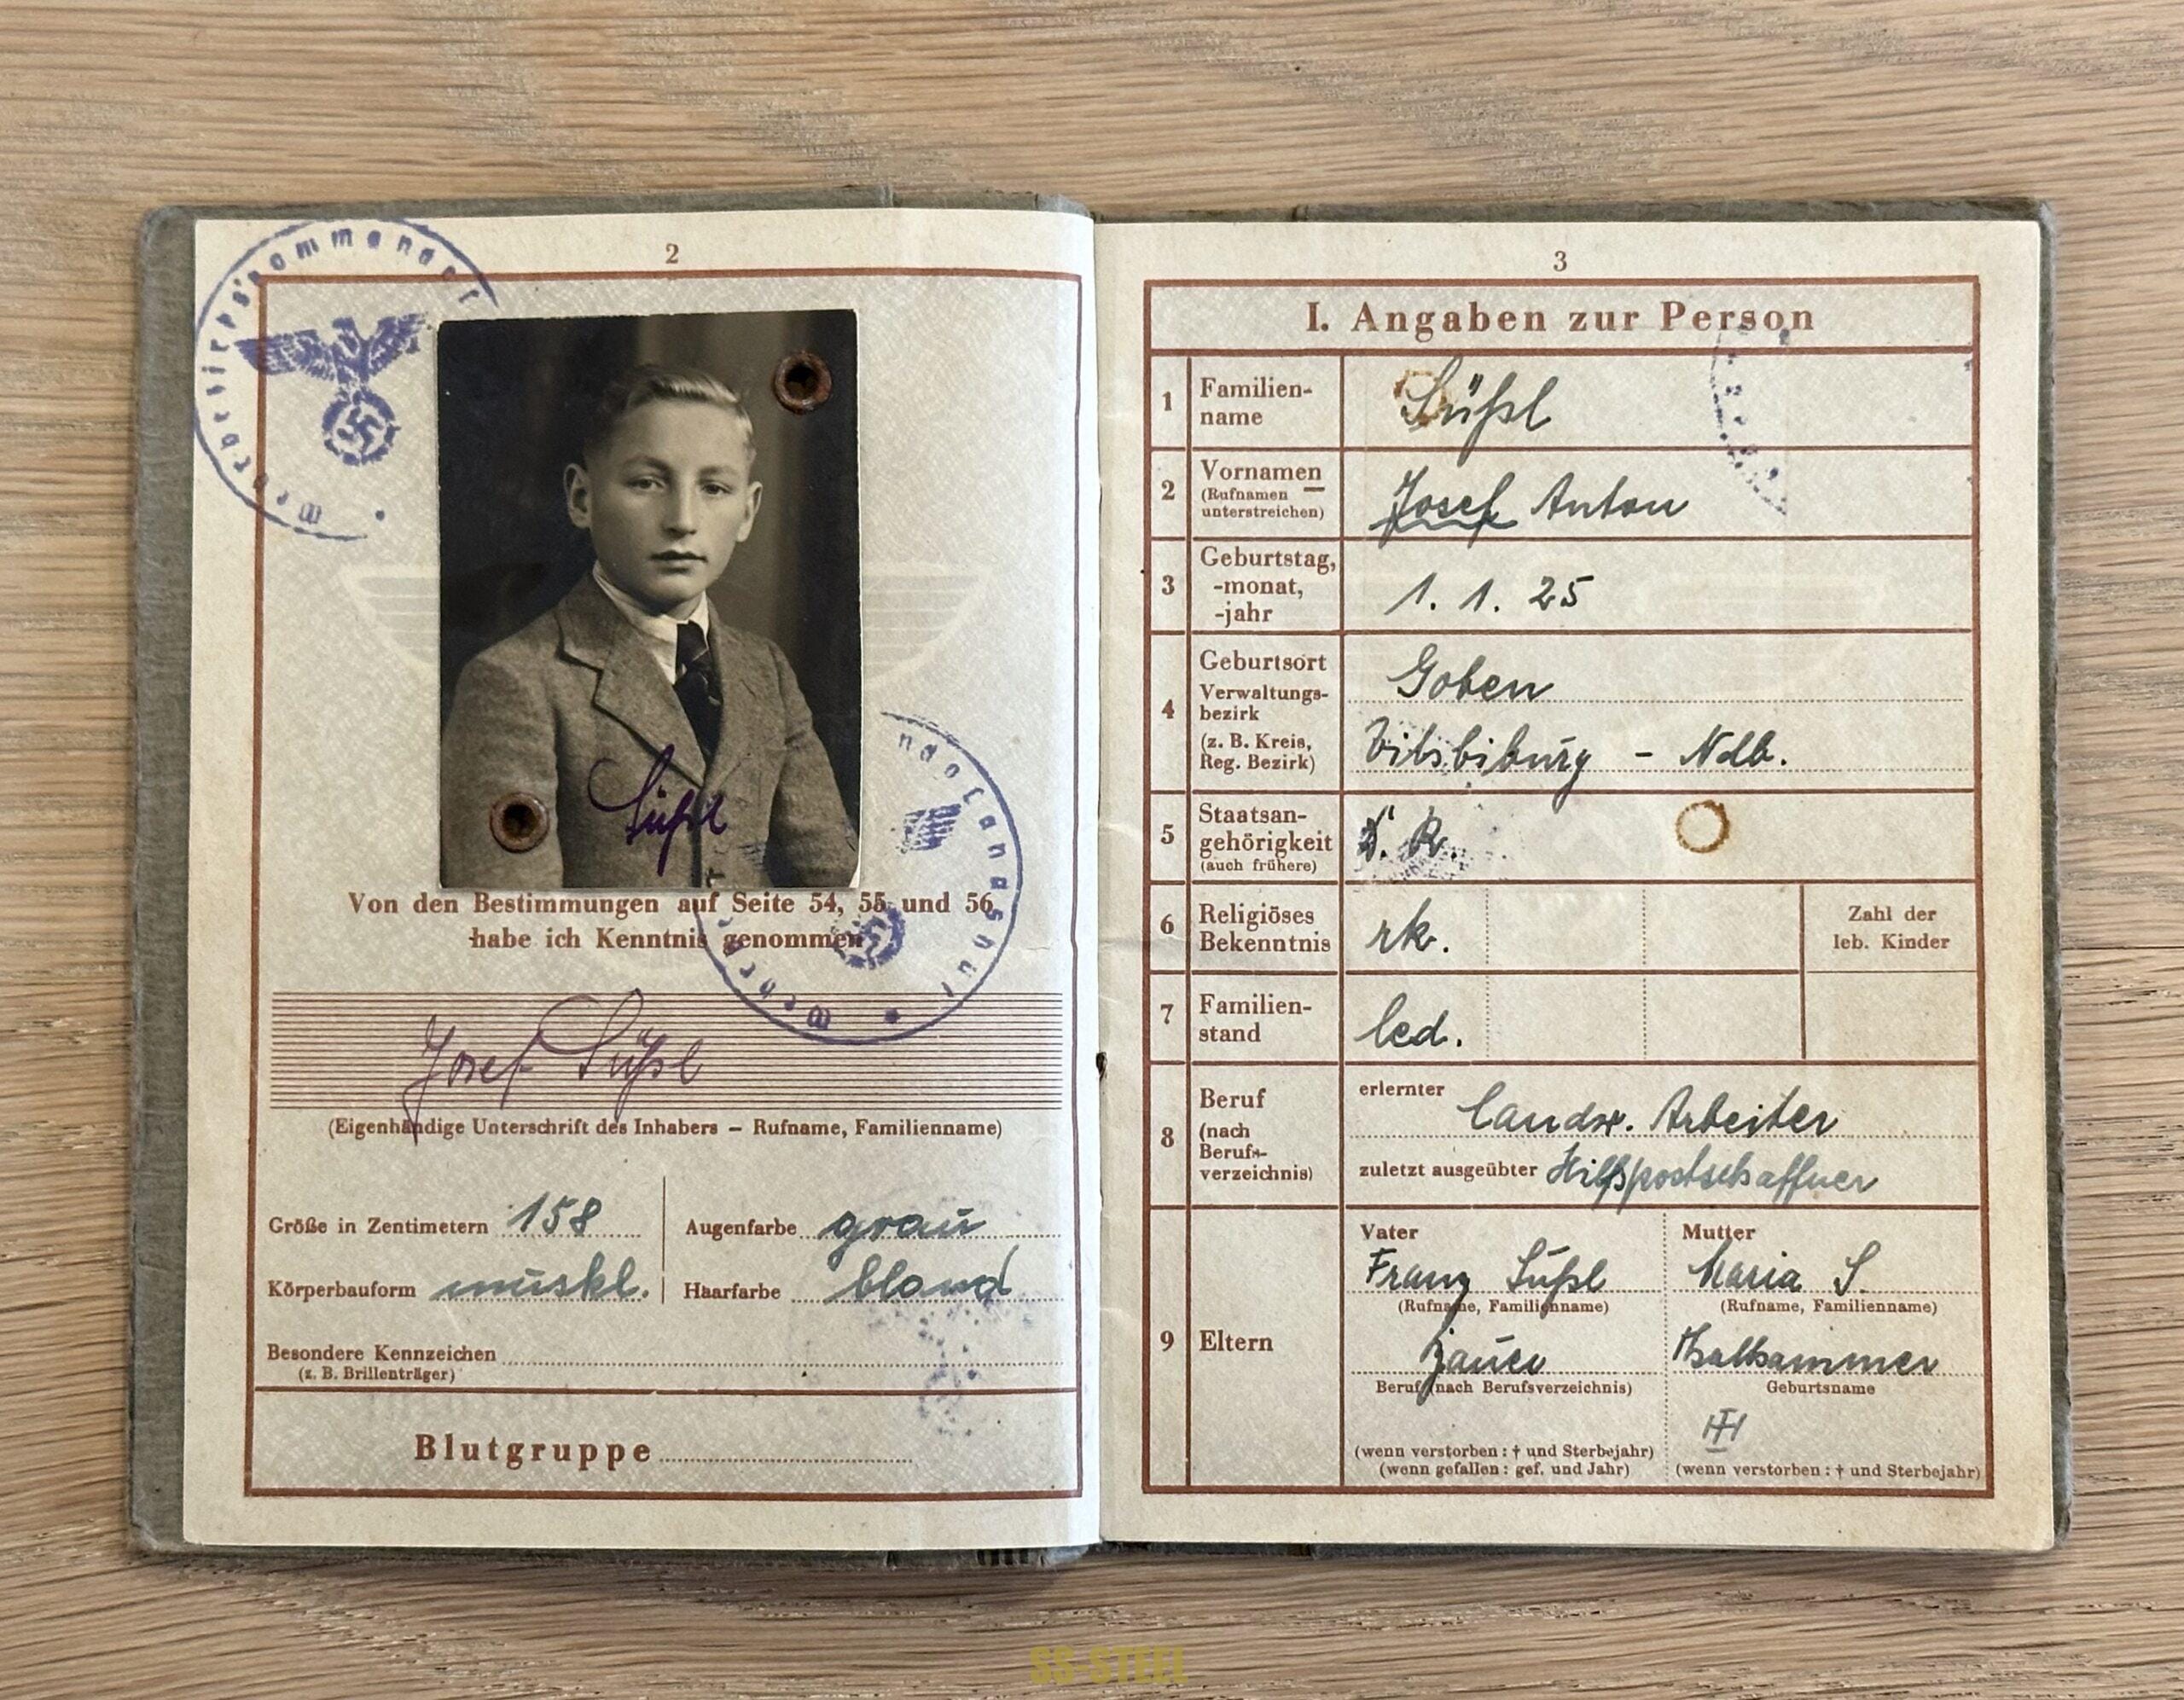 2
Wehrbezirkskommando L
Süßl
Von den Bestimmungen auf Seite 54, 55 und 56
habe ich Kenntnis genommen
Josef Süßl
(Eigenhändige Unterschrift des Inhabers – Rufname, Familienname)
Größe in Zentimetern 158
Augenfarbe grau
Körperbauform muskl.
Haarfarbe blond
Besondere Kennzeichen
(z. B. Brillenträger)
Blutgruppe
3
I. Angaben zur Person
1 Familien-
name
Süßl
2 Vornamen
(Rufnamen
unterstreichen)
Josef Anton
3 Geburtstag,
-monat,
-jahr
1. 1. 25
4 Geburtsort
Goben
Verwaltungs-
bezirk
(z. B. Kreis,
Reg. Bezirk)
Vilsbiburg - Ndb.
5 Staatsan-
gehörigkeit
(auch frühere)
D. R.
6 Religiöses
Bekenntnis
rk.
Zahl der
leb. Kinder
7 Familien-
stand
led.
8 Beruf
(nach
Berufs-
verzeichnis)
erlernter Landw. Arbeiter
zuletzt ausgeübter Hilfspostschaffner
9 Eltern
Vater
Franz Süßl
(Rufname, Familienname)
Beruf (nach Berufsverzeichnis)
(wenn verstorben: † und Sterbejahr)
(wenn gefallen: gef. und Jahr)
Mutter
Maria S.
(Rufname, Familienname)
Thalhammer
Geburtsname
(wenn verstorben: † und Sterbejahr)
SS-STEEL